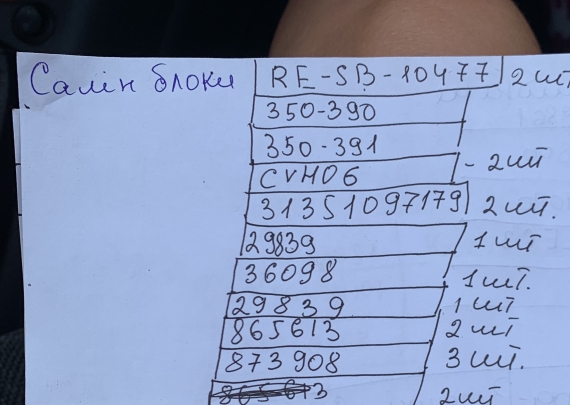 Салін блоки RE-SB-10477 2 шт
350-390
350-391
CVHO6 - 2 шт
31351097179 2 шт.
29839 1 шт
36098 1 шт.
29839 1 шт
865613 2 шт
873908 3 шт.
2 шт